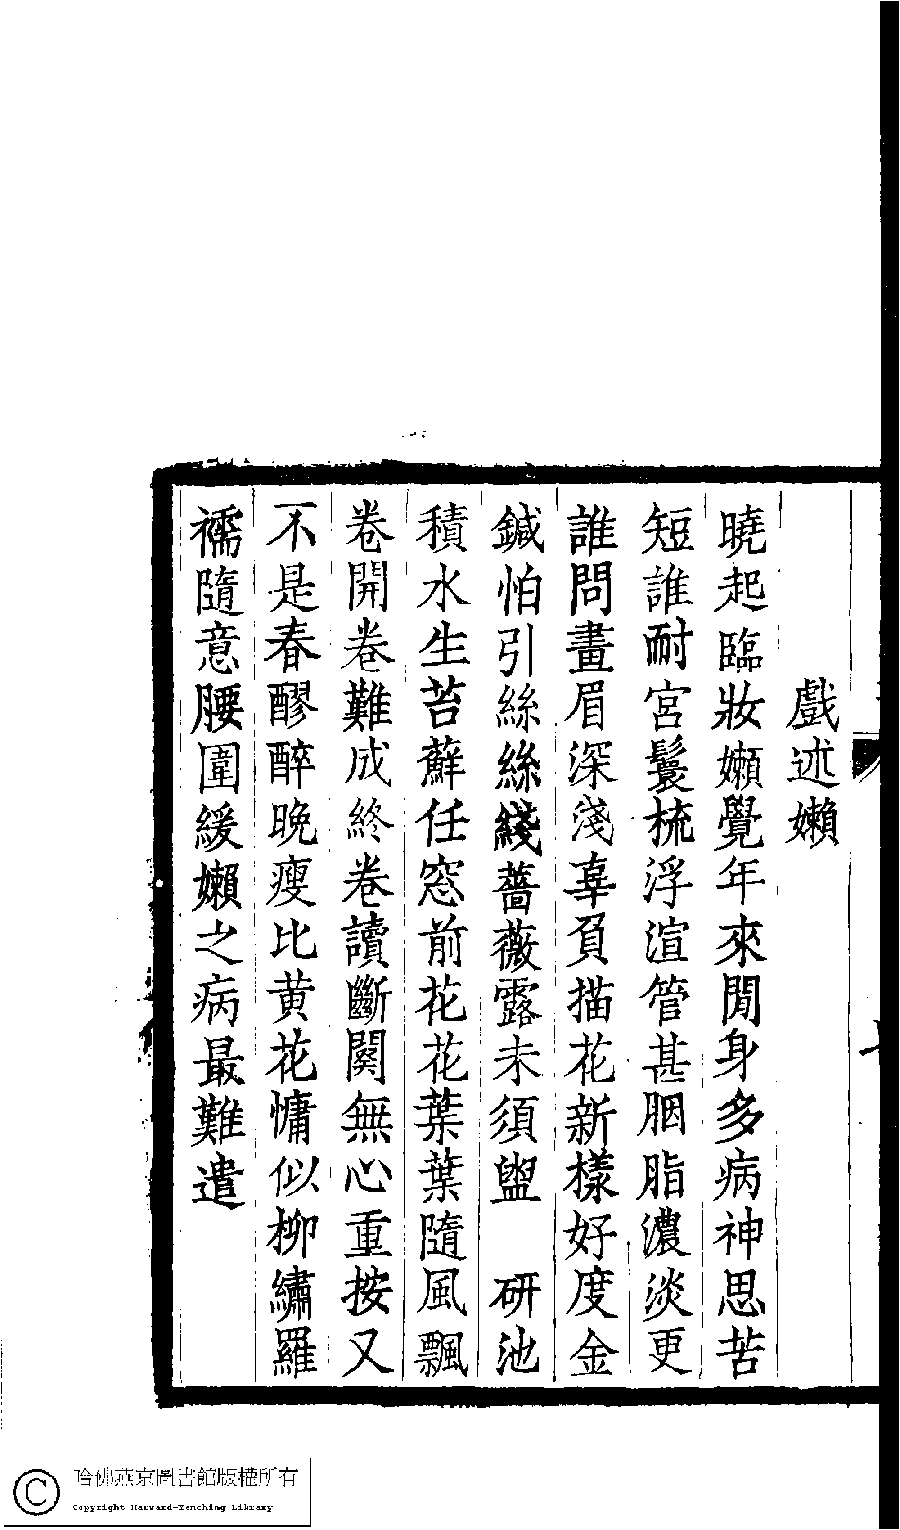 戲述嬾
曉起臨妝嬾覺年來閒身多病神思苦
短誰耐宮鬟梳浮渲管甚胭脂濃淡更
誰問畫眉深淺辜負描花新樣好度金
鍼怕引絲絲綫薔薇露未須盥　研池
積水生苔蘚任窓前花花葉葉隨風飄
卷開卷難成終卷讀斷闋無心重按又
不是春醪醉晩瘦比黄花慵似柳繡羅
襦隨意腰圍緩嬾之病最難遣
哈佛燕京圖書館版權所有
Copyright Harvard-Yenching Library